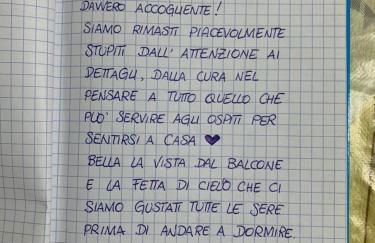 DAVVERO ACCOGLIENTE!
SIAMO RIMASTI PIACEVOLMENTE
STUPITI DALL' ATTENZIONE AI
DETTAGLI, DALLA CURA NEL
PENSARE A TUTTO QUELLO CHE
PUO' SERVIRE AGLI OSPITI PER
SENTIRSI A CASA 🖤
BELLA LA VISTA DAL BALCONE
E LA FETTA DI CIELO CHE CI
SIAMO GUSTATI TUTTE LE SERE
PRIMA DI ANDARE A DORMIRE.